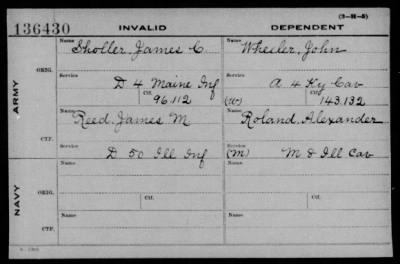 (3-H-5)
136430 INVALID DEPENDENT
Name Name
Sholler, James C. Wheeler, John
ORIG. Service Service
D 4 Maine Inf A 4 Ky Cav
Ctf. Ctf.
96.112 (W) 143.132
ARMY
Name Name
Reed, James M Roland, Alexander
CTF. Service Service
D 50 Ill Inf (M) M 8 Ill Cav
NAVY
Name Name
ORIG. Ctf. Ctf.
Name Name
CTF.